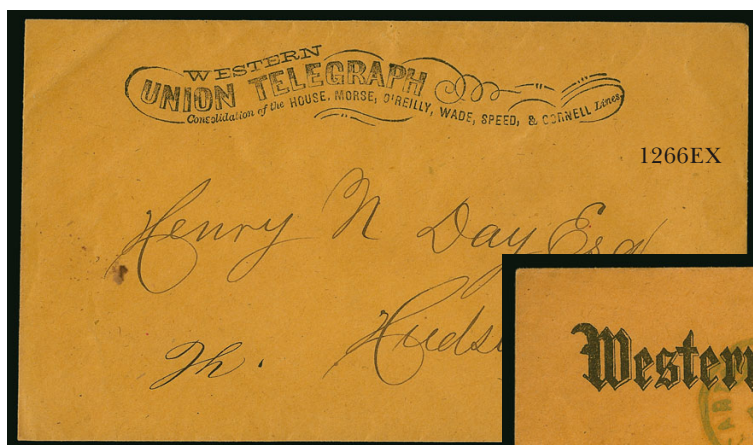 WESTERN
UNION TELEGRAPH
Consolidation of the HOUSE, MORSE, O'REILLY, WADE, SPEED, & CORNELL Lines,
1266EX
Henry N Day Esq
Huds
Western